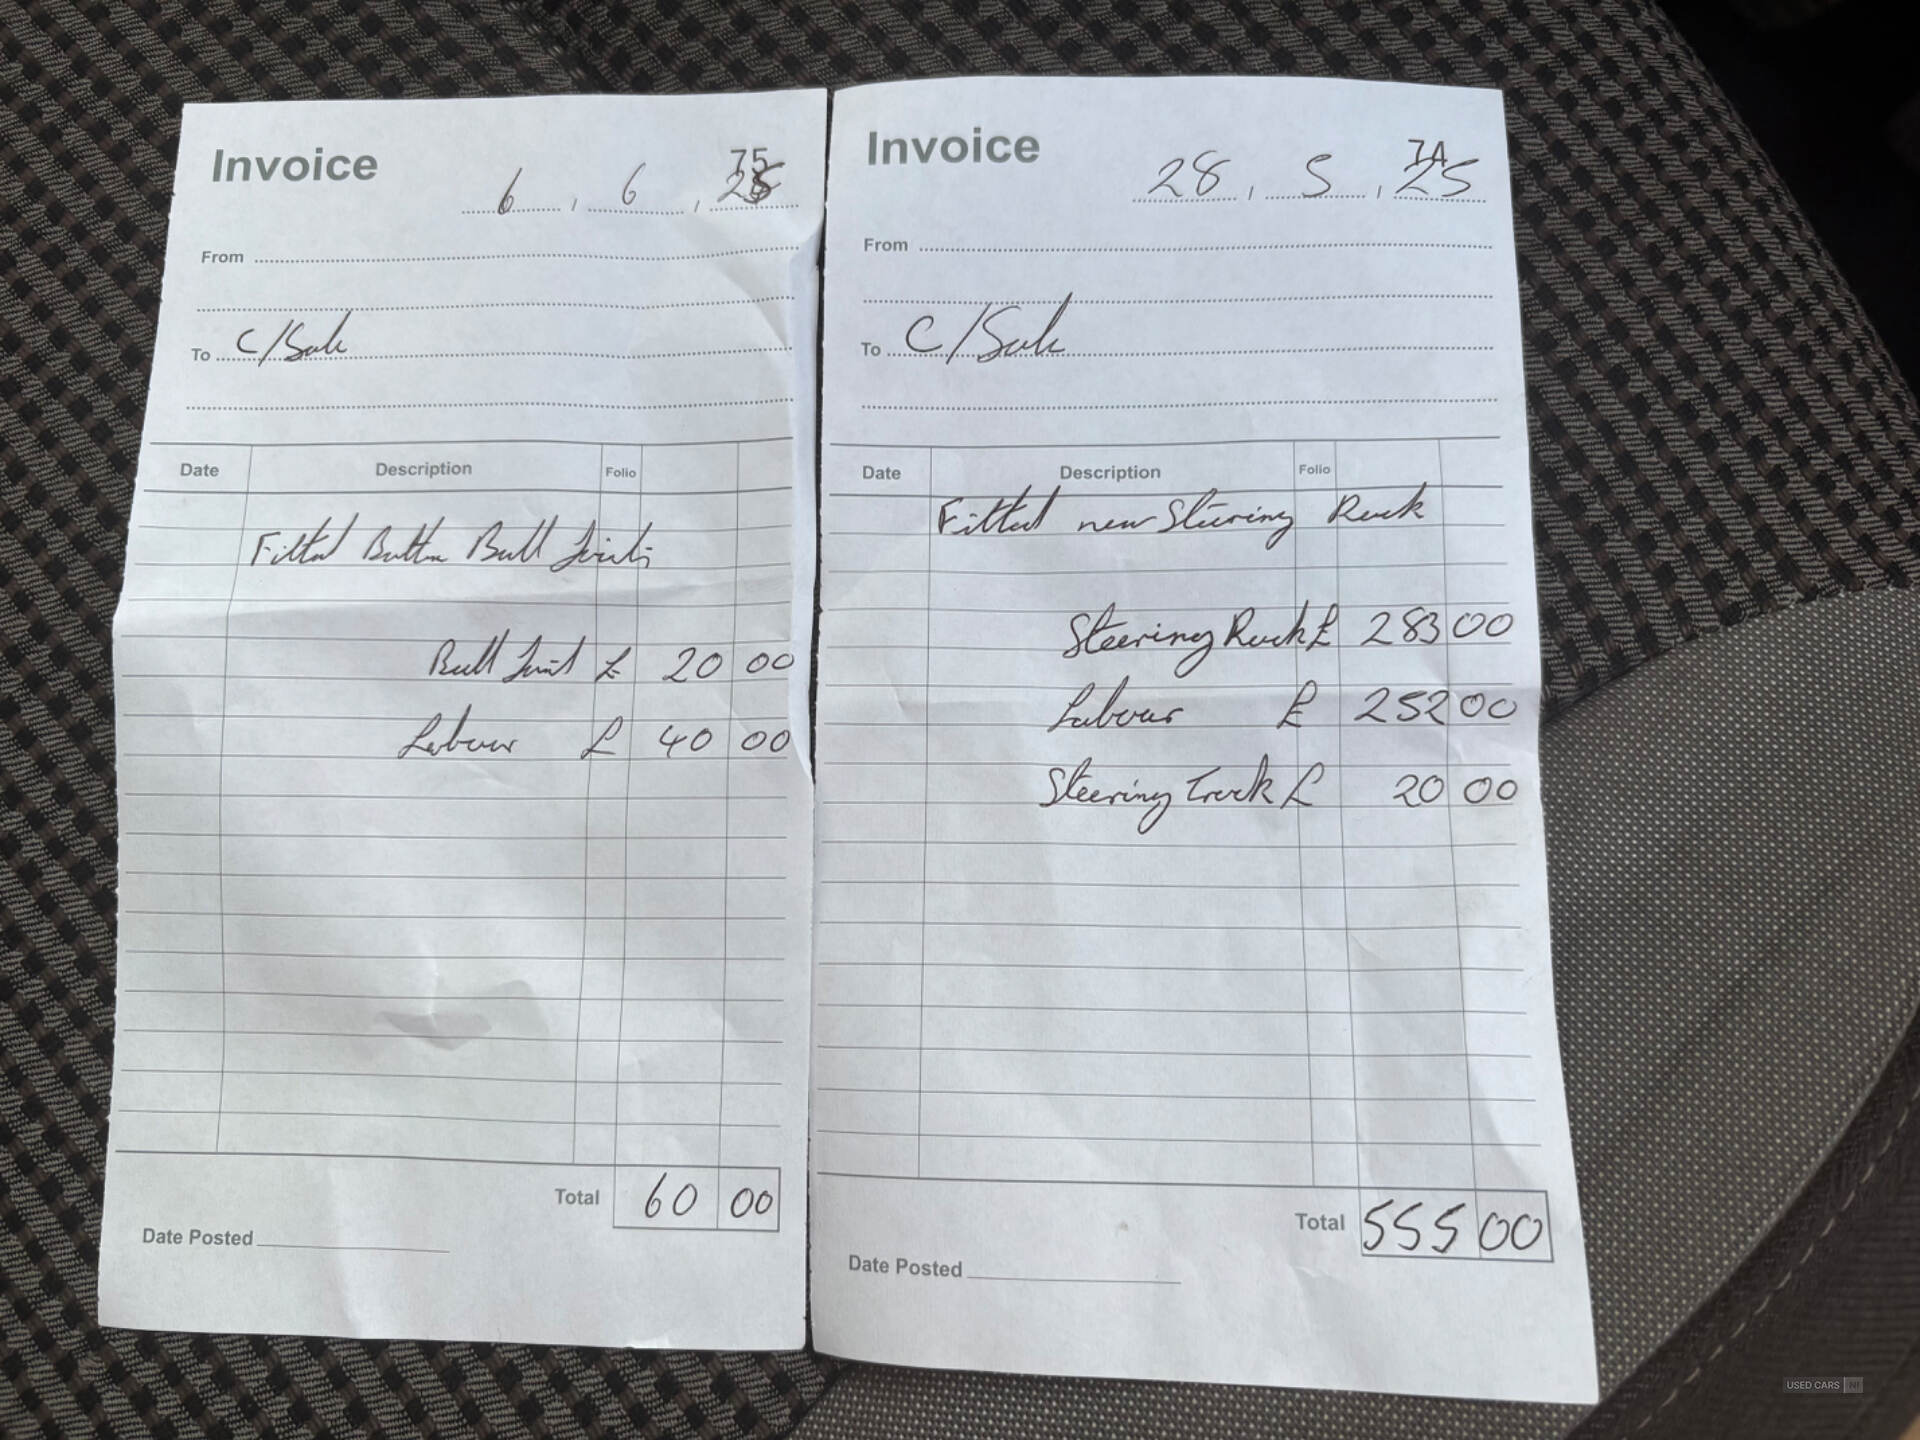 Invoice
75
6 , 6 , 25
From
To C/Sale
Date Description Folio
Fitted Bottom Ball Joints
Ball Joint £ 20 00
Labour £ 40 00
Total 60 00
Date Posted
Invoice
74
28 , 5 , 25
From
To C/Sale
Date Description Folio
Fitted new Steering Rack
Steering Rack £ 283 00
Labour £ 252 00
Steering Track £ 20 00
Total 555 00
Date Posted
USED CARS NI